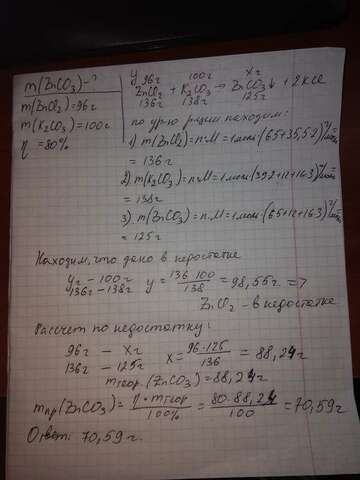 m(ZnCO3)-?
m(ZnCl2)=96г
m(K2CO3)=100г
η =80%
y 96г 100г xг
ZnCl2 + K2CO3 → ZnCO3↓ + 2KCl
136г 138г 125г
по ур-ю р-ции находим:
1) m(ZnCl2)=n·M=1моль·(65+35,5·2)г/моль
= 136г
2) m(K2CO3)=n·M=1моль·(39·2+12+16·3)г/моль
= 138г
3) m(ZnCO3)=n·M=1моль·(65+12+16·3)г/моль
= 125г
Находим, что дано в недостатке
yг - 100г y = 136·100/138 = 98,55г =>
136г - 138г
ZnCl2 - в недостатке
Рассчет по недостатку:
96г - xг x = 96·125/136 = 88,24г
136г - 125г
mтеор.(ZnCO3)=88,24г
mпр(ZnCO3)= η·mтеор/100% = 80·88,24/100 = 70,59г
Ответ: 70,59г.